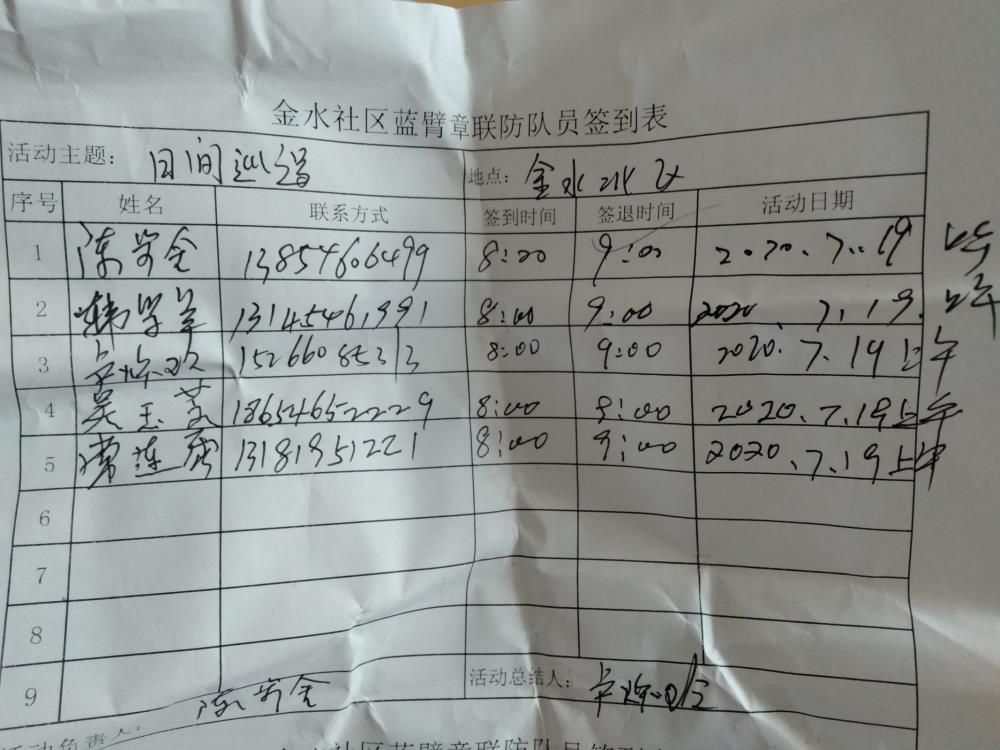 金水社区蓝臂章联防队员签到表
活动主题： 日间巡逻 地点： 金水小区
序号 姓名 联系方式 签到时间 签退时间 活动日期
1 陈安全 13854606499 8:00 9:00 2020.7.19 上午
2 韩学革 13145461991 8:00 9:00 2020.7.19. 上午
3 15266085313 8:00 9:00 2020.7.19上午
4 吴玉芝 18654652229 8:00 9:00 2020.7.19上午
5 常莲 13181951221 8:00 9:00 2020.7.19上午
6
7
8
9
陈安全 活动总结人：
活动负责人：
金水社区蓝臂章联防队员签到表